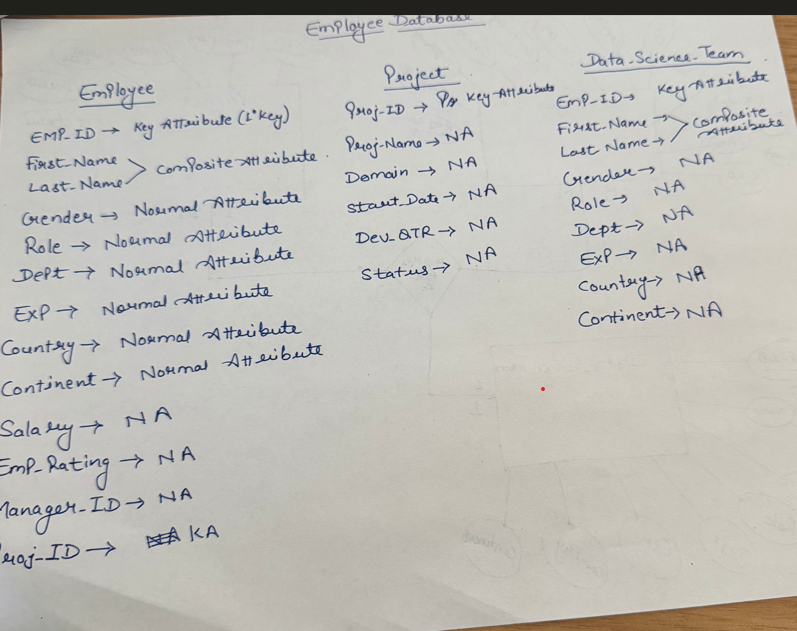 Employee Database
Employee
EMP_ID → Key Attribute (1° Key)
First_Name
Last_Name > Composite Attribute.
Gender → Normal Attribute
Role → Normal Attribute
Dept → Normal Attribute
Exp → Normal Attribute
Country → Normal Attribute
Continent → Normal Attribute
Salary → NA
Emp_Rating → NA
Manager_ID → NA
Proj_ID → KA
Project
Proj_ID → Key Attribute
Proj_Name → NA
Domain → NA
Start_Date → NA
Dev_QTR → NA
Status → NA
Data_Science_Team
Emp_ID → Key Attribute
First_Name →
Last Name → > Composite Attribute
Gendar → NA
Role → NA
Dept → NA
Exp → NA
Country → NA
Continent → NA